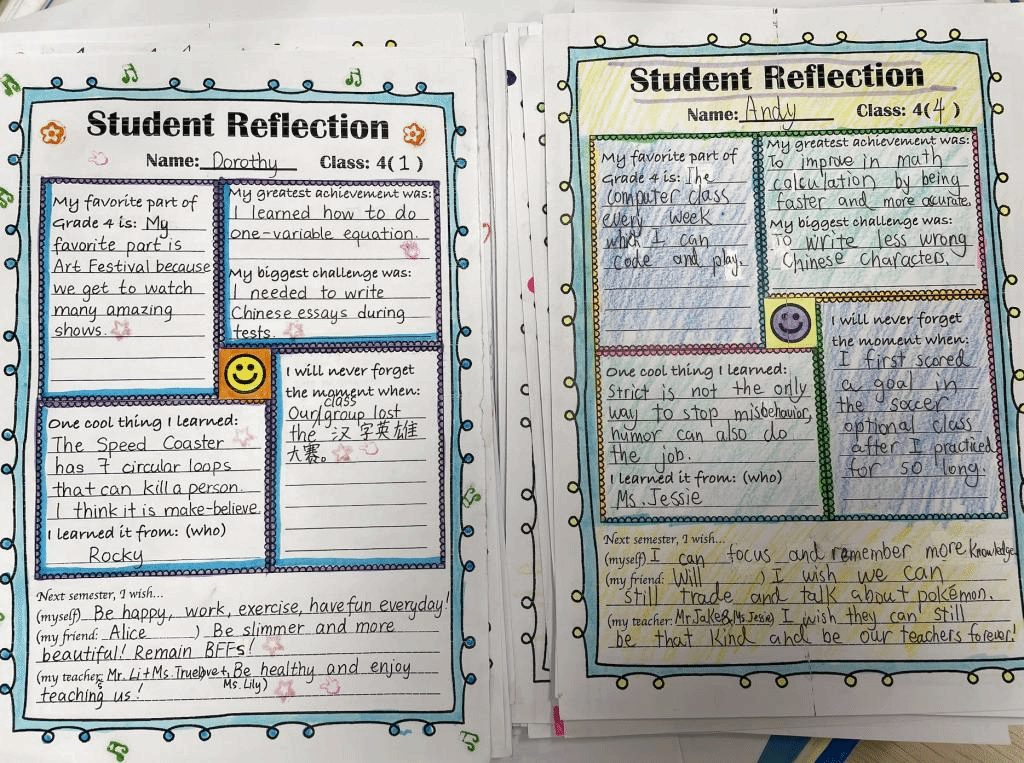 Student Reflection
Name: Dorothy Class: 4(1)
My favorite part of
Grade 4 is: My
favorite part is
Art Festival because
we get to watch
many amazing
shows.
My greatest achievement was:
I learned how to do
one-variable equation.
My biggest challenge was:
I needed to write
Chinese essays during
tests.
One cool thing I learned:
The Speed Coaster
has 7 circular loops
that can kill a person.
I think it is make-believe.
I learned it from: (who)
Rocky
I will never forget
the moment when:
class
Our/group lost
the 汉字英雄
大赛。
Next semester, I wish...
(myself) Be happy, work, exercise, have fun everyday!
(my friend: Alice ) Be slimmer and more
beautiful! Remain BFFs!
(my teachers: Mr. Li + Ms. Truelove +, Be healthy and enjoy
Ms. Lily)
teaching us!
Student Reflection
Name: Andy Class: 4(4)
My favorite part of
Grade 4 is: The
computer class
every week
which I can
code and play.
My greatest achievement was:
To improve in math
calculation by being
faster and more acurate.
My biggest challenge was:
To write less wrong
Chinese characters.
One cool thing I learned:
Strict is not the only
way to stop misbehavior,
humor can also do
the job.
I learned it from: (who)
Ms. Jessie
I will never forget
the moment when:
I first scored
a goal in
the soccer
optional class
after I practiced
for so long.
Next semester, I wish...
(myself) I can focus and remember more knowledge.
(my friend: Will ) I wish we can
still trade and talk about pokémon.
(my teacher: Mr. Jake&Ms. Jessie) I wish they can still
be that kind and be our teachers forever!